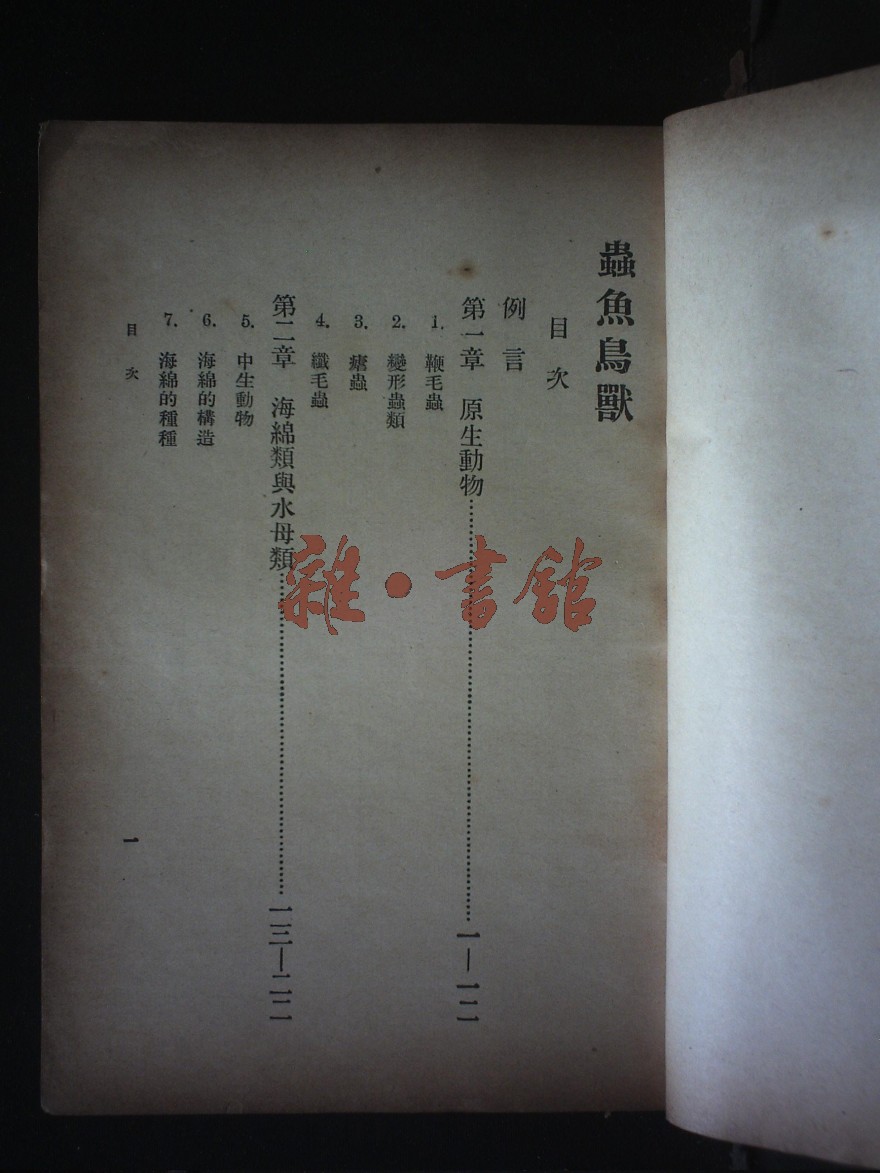 蟲魚鳥獸
目次
例言
第一章 原生動物……………………一—一二
1. 鞭毛蟲
2. 變形蟲類
3. 瘧蟲
4. 纖毛蟲
第二章 海綿類與水母類……………………一三—二二
5. 中生動物
6. 海綿的構造
7. 海綿的種種
目次
一
雜·書館